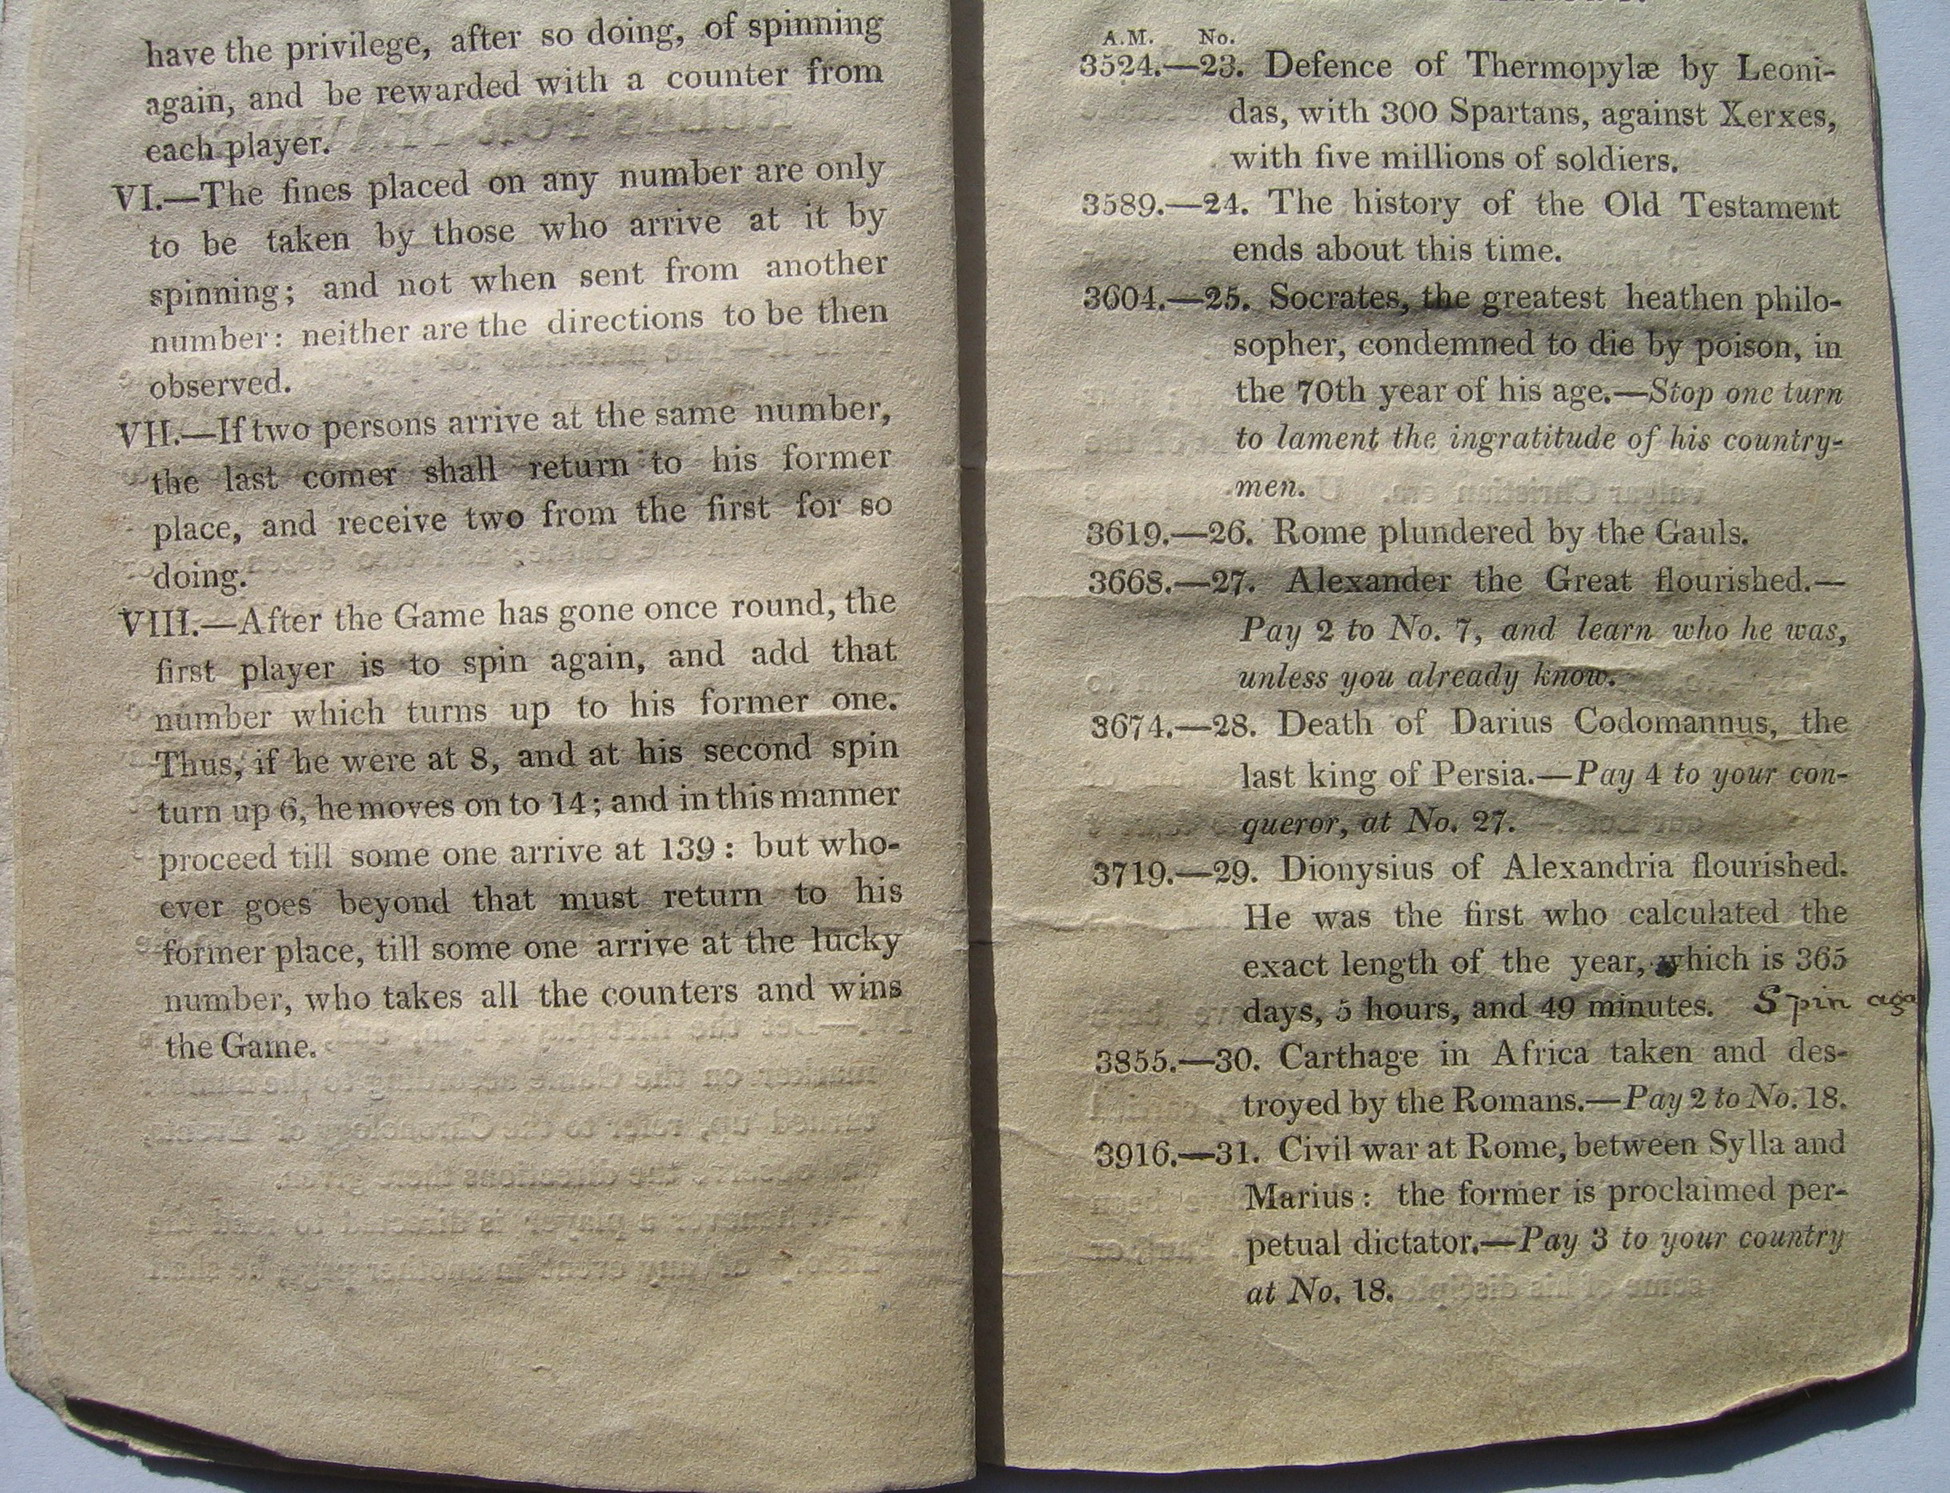 have the privilege, after so doing, of spinning
again, and be rewarded with a counter from
each player.
VI.—The fines placed on any number are only
to be taken by those who arrive at it by
spinning; and not when sent from another
number: neither are the directions to be then
observed.
VII.—If two persons arrive at the same number,
the last comer shall return to his former
place, and receive two from the first for so
doing.
VIII.—After the Game has gone once round, the
first player is to spin again, and add that
number which turns up to his former one.
Thus, if he were at 8, and at his second spin
turn up 6, he moves on to 14; and in this manner
proceed till some one arrive at 139: but who-
ever goes beyond that must return to his
former place, till some one arrive at the lucky
number, who takes all the counters and wins
the Game.
A.M. No.
3524.—23. Defence of Thermopylæ by Leoni-
das, with 300 Spartans, against Xerxes,
with five millions of soldiers.
3589.—24. The history of the Old Testament
ends about this time.
3604.—25. Socrates, the greatest heathen philo-
sopher, condemned to die by poison, in
the 70th year of his age.—Stop one turn
to lament the ingratitude of his country-
men.
3619.—26. Rome plundered by the Gauls.
3668.—27. Alexander the Great flourished.—
Pay 2 to No. 7, and learn who he was,
unless you already know.
3674.—28. Death of Darius Codomannus, the
last king of Persia.—Pay 4 to your con-
queror, at No. 27.
3719.—29. Dionysius of Alexandria flourished.
He was the first who calculated the
exact length of the year, which is 365
days, 5 hours, and 49 minutes. Spin aga
3855.—30. Carthage in Africa taken and des-
troyed by the Romans.—Pay 2 to No. 18.
3916.—31. Civil war at Rome, between Sylla and
Marius: the former is proclaimed per-
petual dictator.—Pay 3 to your country
at No. 18.